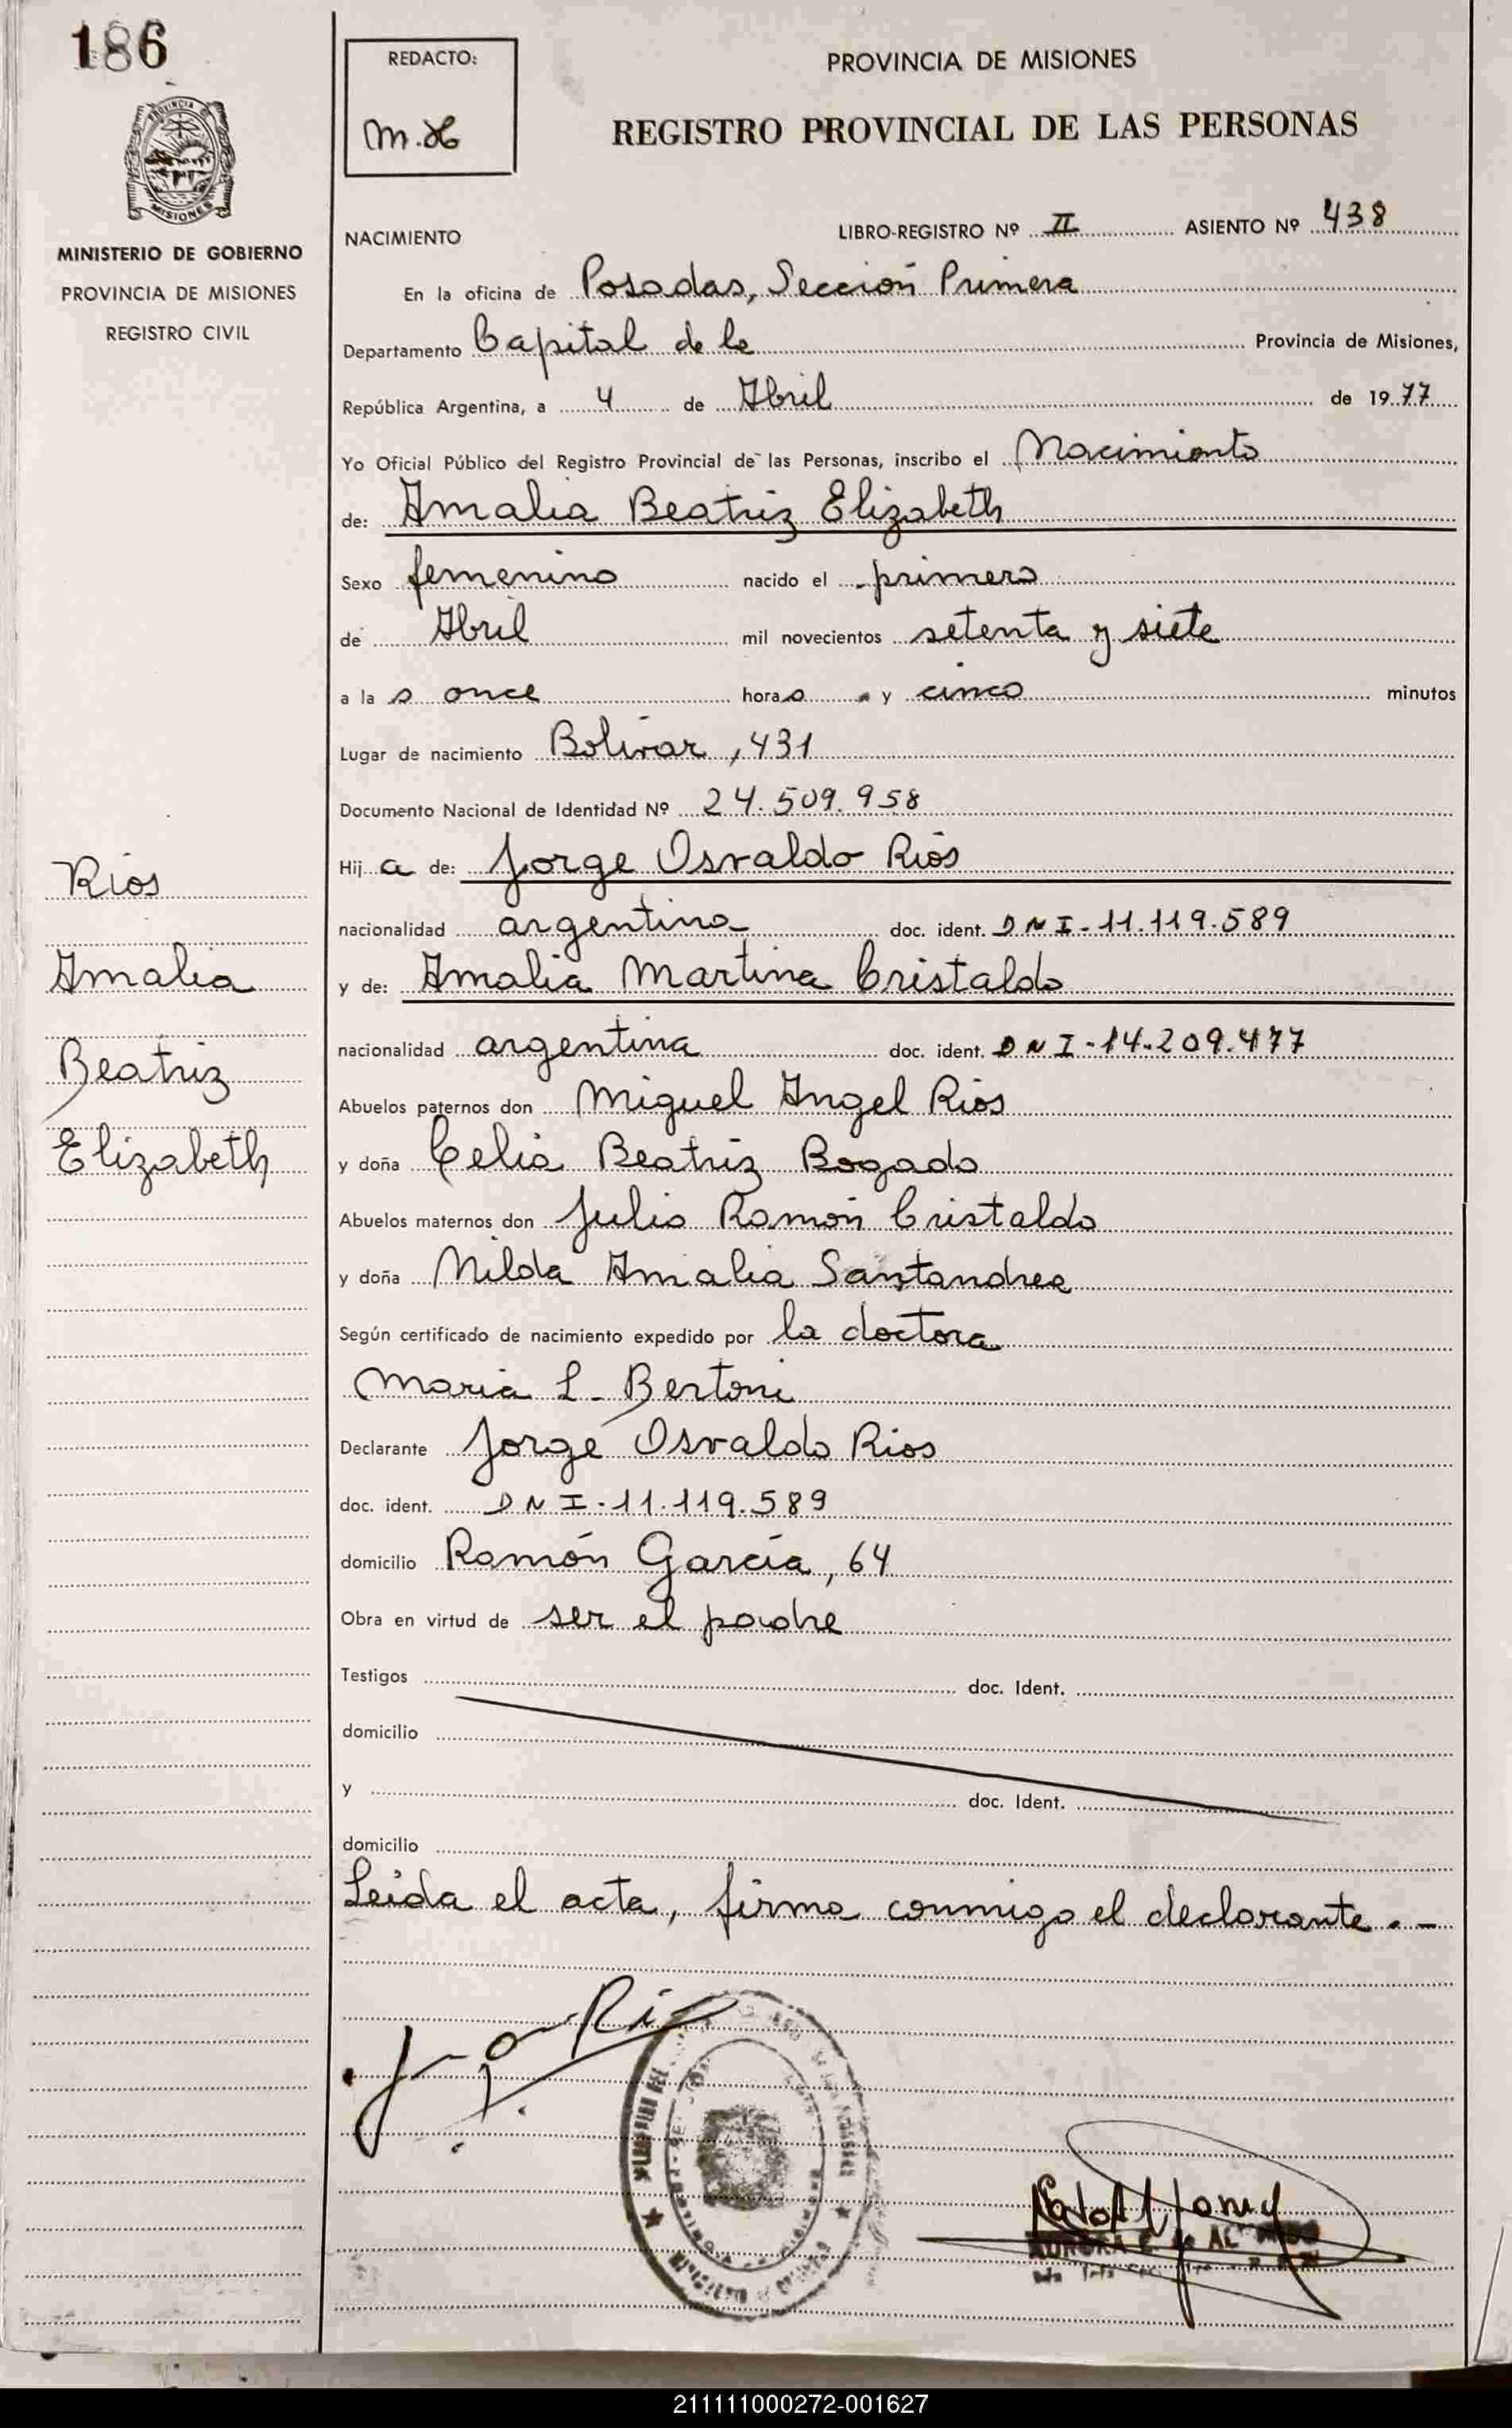 186
MINISTERIO DE GOBIERNO
PROVINCIA DE MISIONES
REGISTRO CIVIL
Rios
Amalia
Beatriz
Elizabeth
REDACTO:
PROVINCIA DE MISIONES
REGISTRO PROVINCIAL DE LAS PERSONAS
NACIMIENTO LIBRO-REGISTRO Nº II ASIENTO Nº 438
En la oficina de Posadas, Sección Primera
Departamento Capital de la Provincia de Misiones,
República Argentina, a 4 de Abril de 1977
Yo Oficial Público del Registro Provincial de las Personas, inscribo el Nacimiento
de: Amalia Beatriz Elizabeth
Sexo femenino nacido el primero
de Abril mil novecientos setenta y siete
a las once horas y cinco minutos
Lugar de nacimiento Bolívar, 431
Documento Nacional de Identidad Nº 24.509.958
Hija de: Jorge Osvaldo Rios
nacionalidad argentina doc. ident. DNI-11.119.589
y de: Amalia Martina Cristaldo
nacionalidad argentina doc. ident. DNI-14.209.477
Abuelos paternos don Miguel Angel Rios
y doña Celia Beatriz Bogado
Abuelos maternos don Julio Ramón Cristaldo
y doña Nilda Amalia Santandrea
Según certificado de nacimiento expedido por la doctora
Maria L. Bertoni
Declarante Jorge Osvaldo Rios
doc. ident. DNI-11.119.589
domicilio Ramón García, 64
Obra en virtud de ser el padre
Testigos doc. Ident.
domicilio
y doc. Ident.
domicilio
Leida el acta, firma conmigo el declarante.-
211111000272-001627